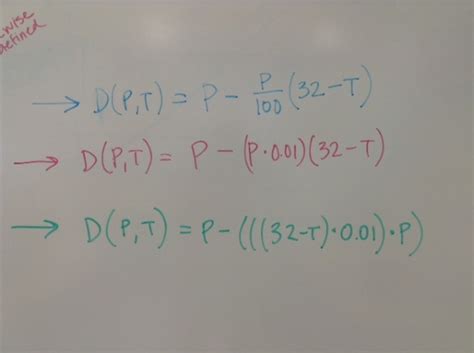 wise
defined
→ D(P,T) = P - P/100 (32-T)
→ D(P,T) = P - (P·0.01)(32-T)
→ D(P,T) = P - (((32-T)·0.01)·P)